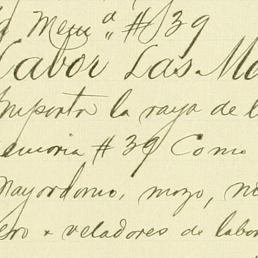 d Mem.ª #39
Labor Las M
Importa la raya de l
emoria #39 Como
Mayordomo, mozo,
ero + veladores de labor